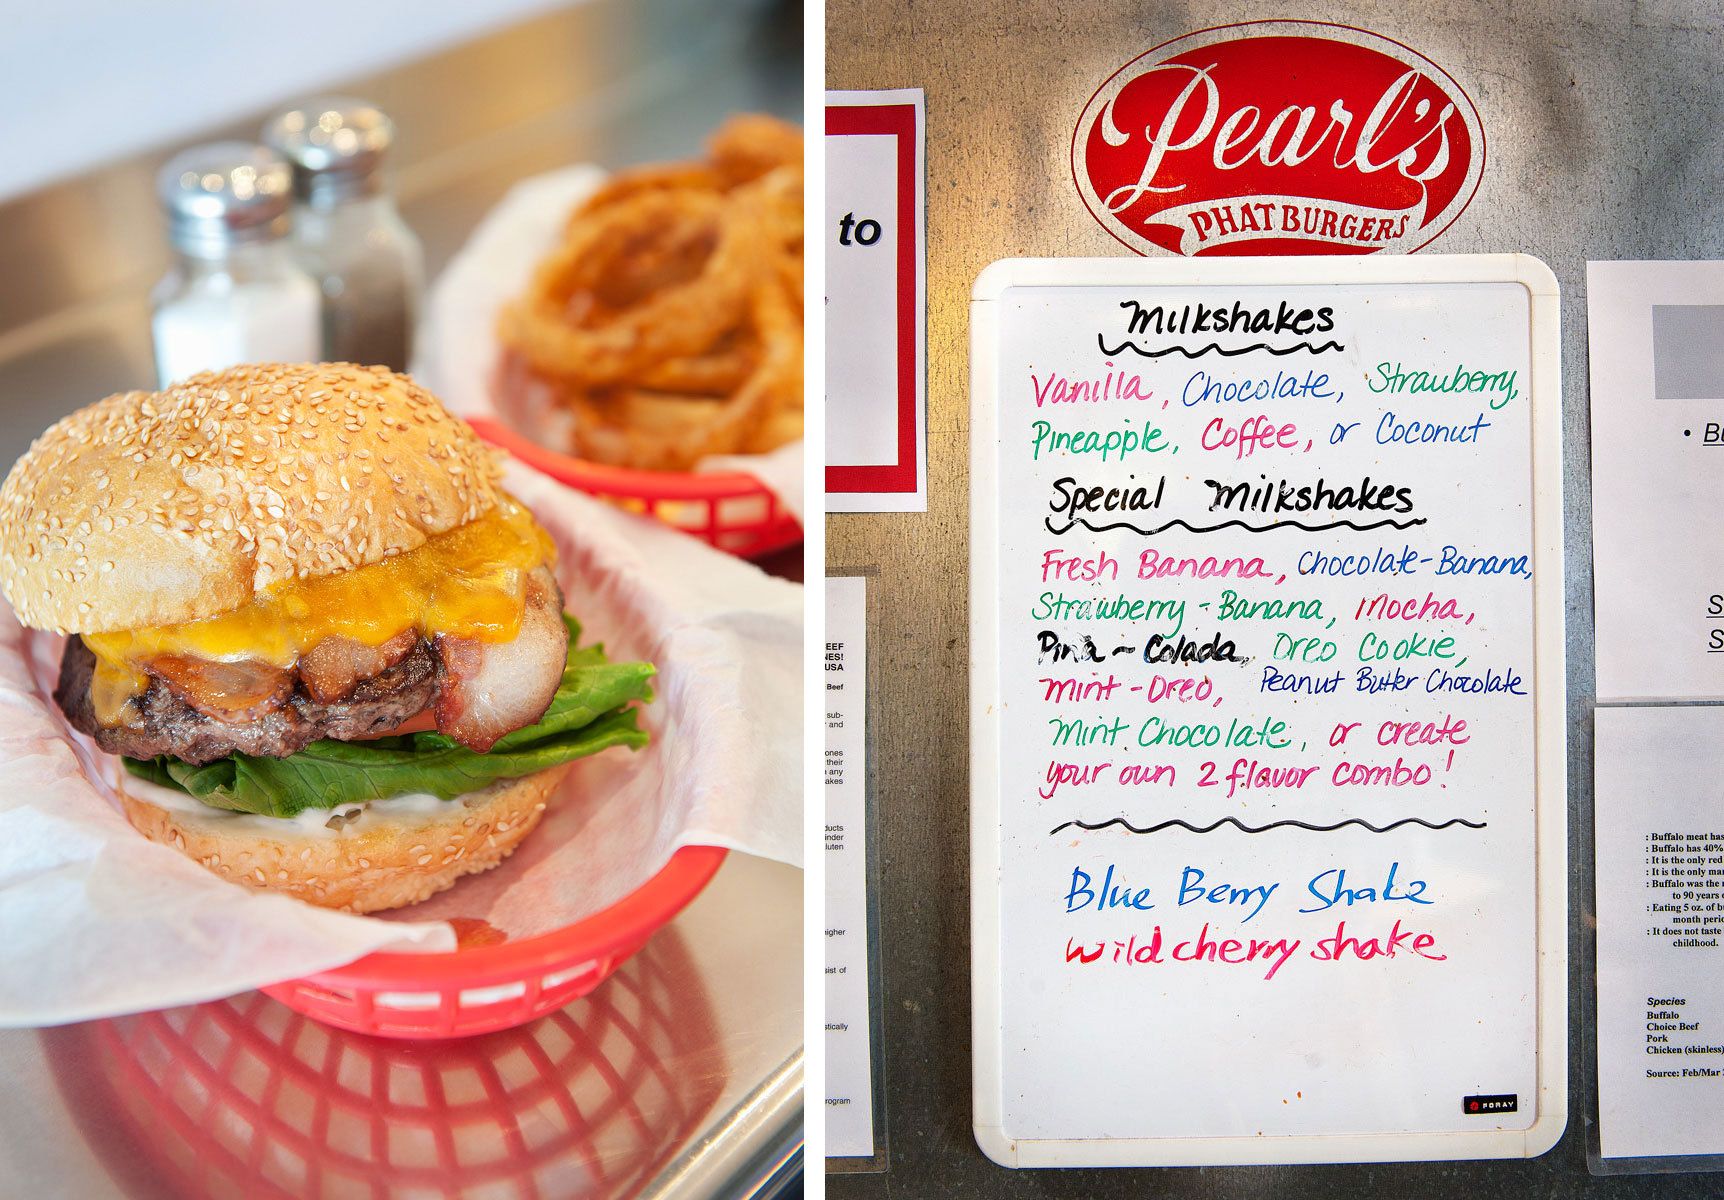 to
Pearl's
PHAT BURGERS
Milkshakes
Vanilla, Chocolate, Strawberry,
Pineapple, Coffee, or Coconut
Special Milkshakes
Fresh Banana, Chocolate-Banana,
Strawberry-Banana, Mocha,
Pina-Colada, Oreo Cookie,
Mint-Oreo, Peanut Butter Chocolate
Mint Chocolate, or create
your own 2 flavor combo!
Blue Berry Shake
Wild cherry shake
FORAY
BEEF
NES!
USA
Beef
sub-
and
ones
their
any
akes
ducts
inder
luten
igher
sist of
stically
rogram
• Bu
S
S
: Buffalo meat has
: Buffalo has 40%
: It is the only red
: It is the only mar
: Buffalo was the
to 90 years
: Eating 5 oz. of b
month perio
: It does not taste
childhood.
Species
Buffalo
Choice Beef
Pork
Chicken (skinless)
Source: Feb/Mar